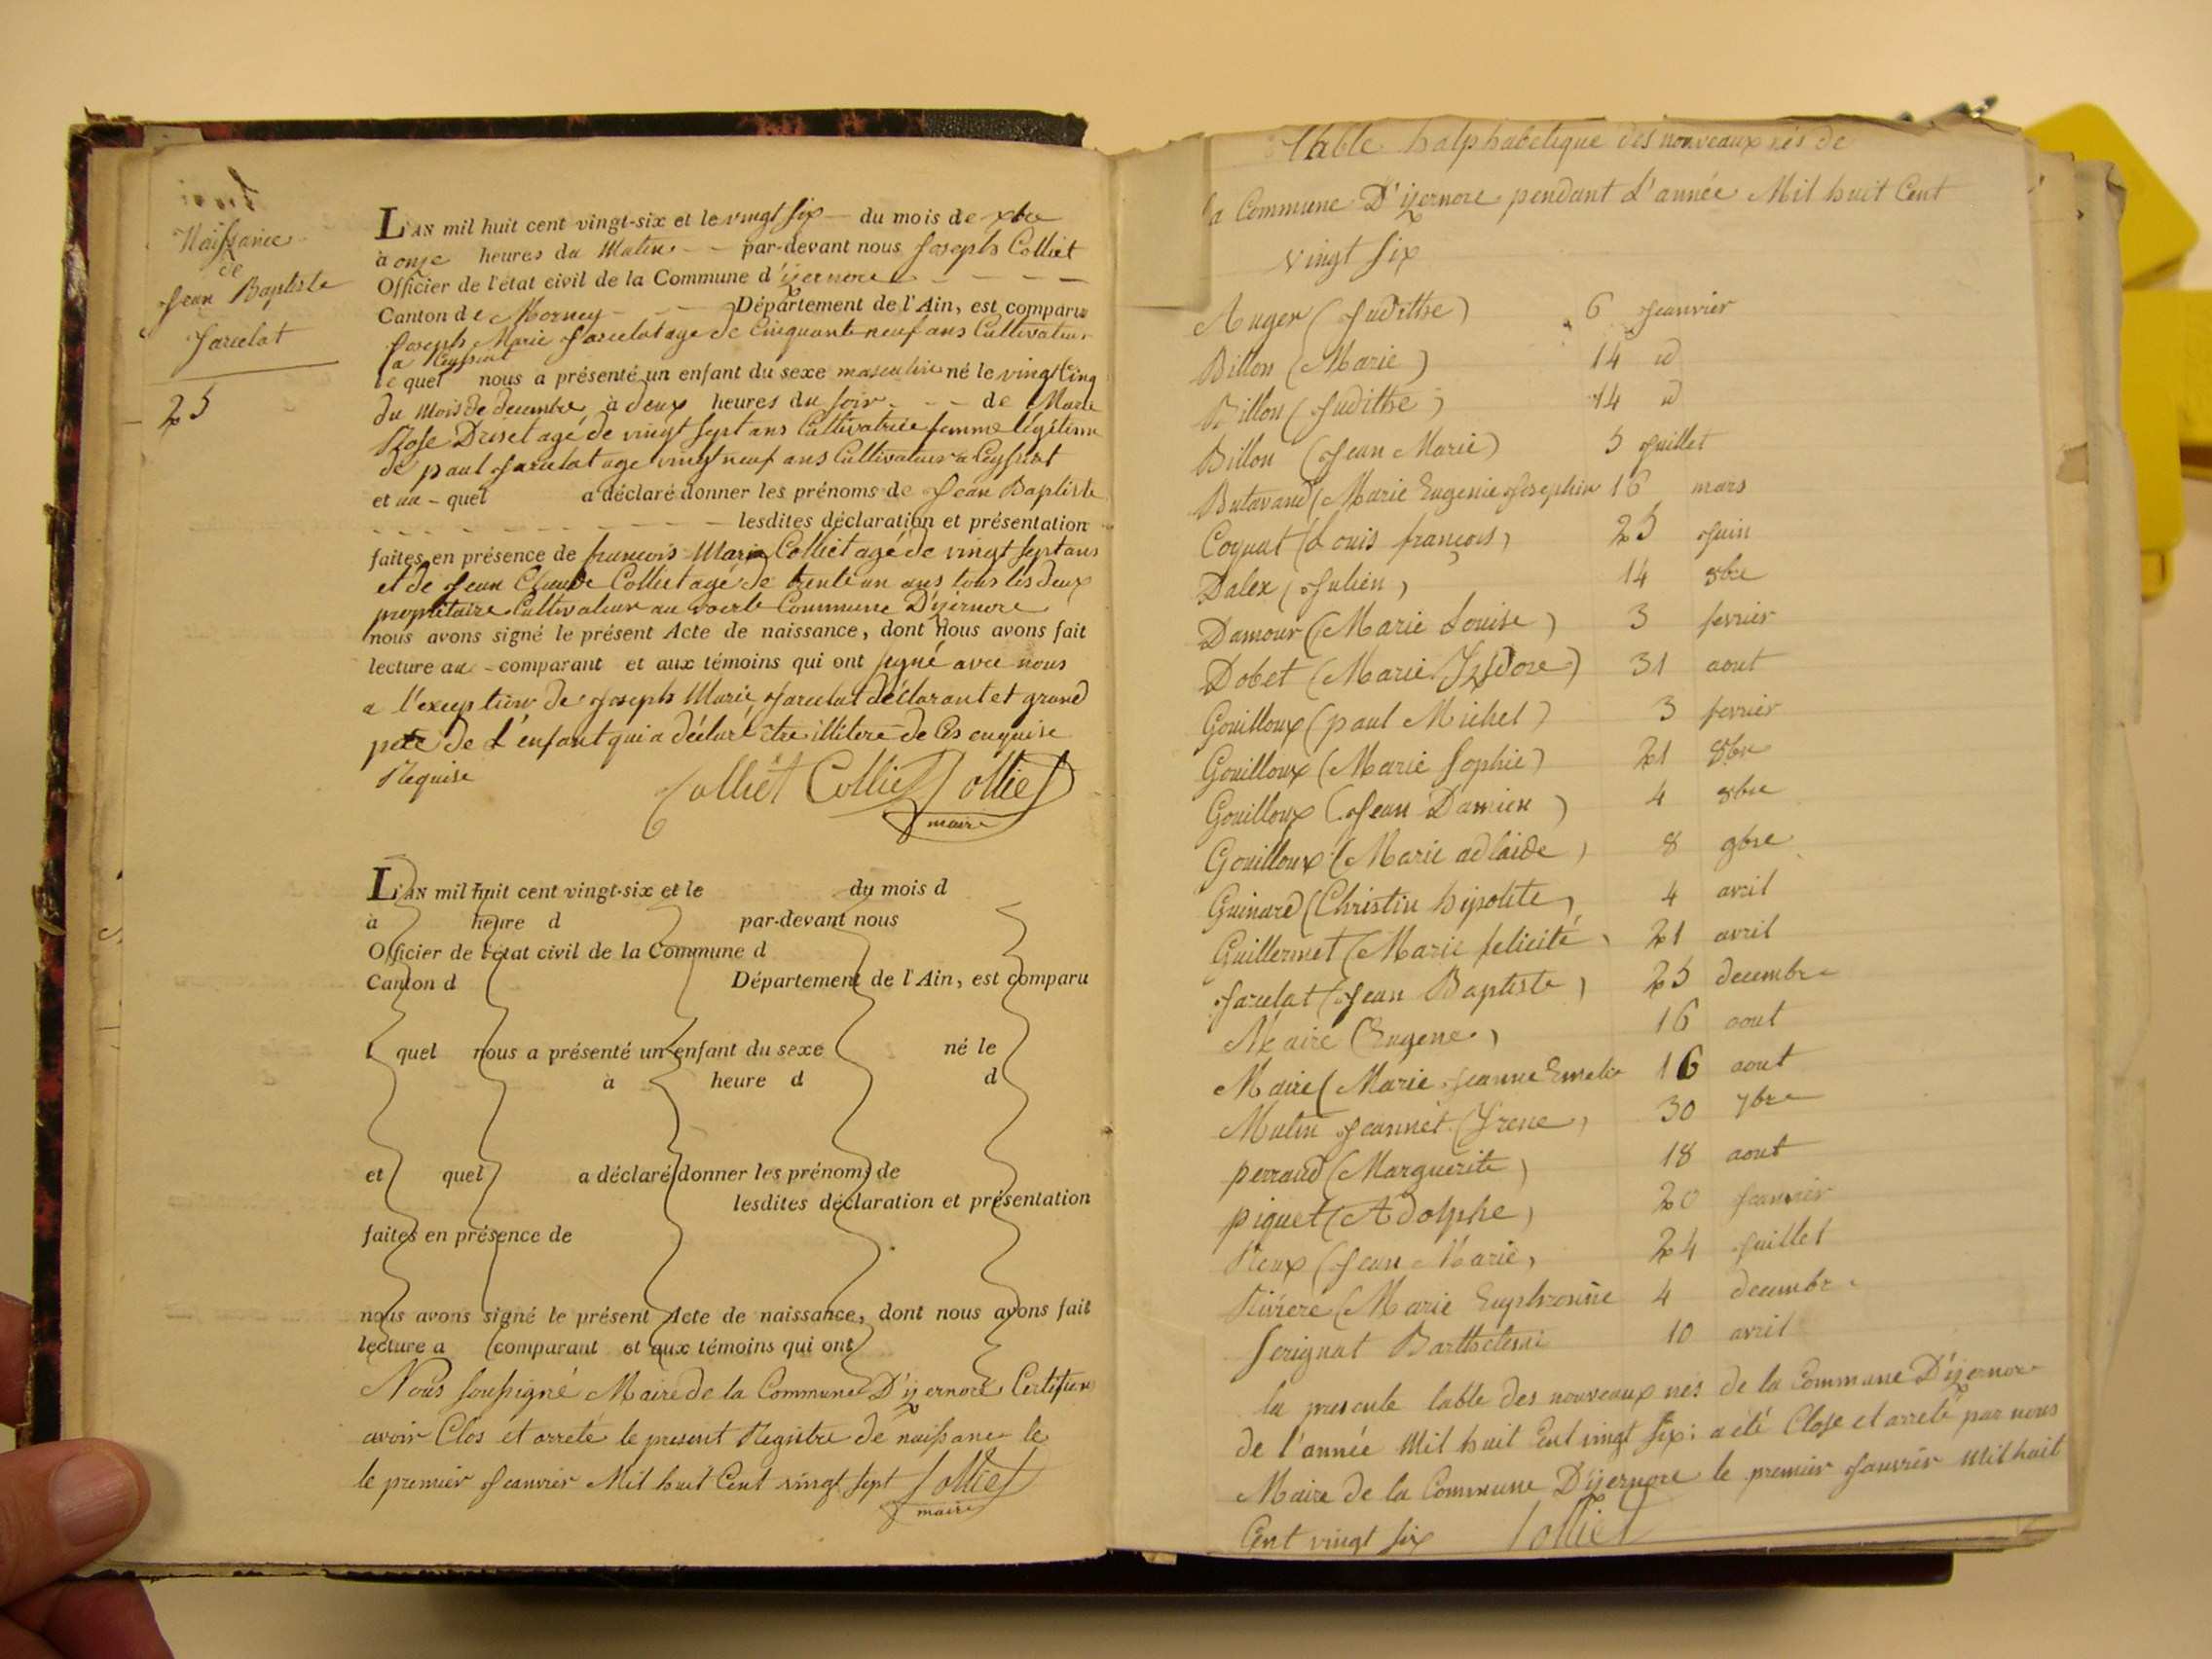 Naissance
de
Jean Baptiste
Jarcelat
25
L'AN mil huit cent vingt-six et le vingt six du mois de xbre
à onze heures du Matin par-devant nous Joseph Colliet
Officier de l'état civil de la Commune d'izernore
Canton de Département de l'Ain, est comparu
Joseph Marie Jarcelat age de Cinquante neuf ans Cultivateur
a
le quel nous a présenté un enfant du sexe masculin né le vingt Cinq
du mois de decembre à deux heures du soir de Marie
Rose Druset agé de vingt sept ans Cultivatrice femme légitime
de paul Jarcelat age vingt neuf ans Cultivateur a Ceyssiat
et au quel a déclaré donner les prénoms de Jean Baptiste
lesdites déclaration et présentation
faites en présence de francois Marie Colliet agé de vingt sept ans
et de Jean Claude Colliet agé de trente un ans tous les deux
propriétaire Cultivateur au Commune D'izernore
nous avons signé le présent Acte de naissance, dont nous avons fait
lecture au comparant et aux témoins qui ont signé avec nous
a l'exception de Joseph Marie Jarcelat déclarant et grand
pere de L'enfant qui a déclaré être illitere de Ces enquise
Requise
Colliet Colliet Colliet
maire
L'AN mil huit cent vingt-six et le du mois d
à heure d par-devant nous
Officier de l'état civil de la Commune d
Canton d Département de l'Ain, est comparu
l quel nous a présenté un enfant du sexe né le
à heure d d
et quel a déclaré donner les prénoms de
lesdites déclaration et présentation
faites en présence de
nous avons signé le présent Acte de naissance, dont nous avons fait
lecture a comparant et aux témoins qui ont
Nous soussigné Maire de la Commune D'izernore Certifions
avoir Clos et arreté le present Registre de naissance le
le premier Jeanvier Mil huit Cent vingt sept Colliet
maire
table halphabetique des nouveaux nés de
la Commune D'izernore pendant L'année Mil huit Cent
vingt six
Auger (Judithe) 6 Jeanvier
Billon (Marie) 14 id
Billon (Judithe) 14 id
Billon (Jean Marie) 5 Juillet
Butavand (Marie Eugenie Josephin 16 mars
Coquat (Louis françois) 25 Juin
Dalex (Julien) 14 8bre
Damour (Marie Louise) 3 fevrier
Dobet (Marie Isidore) 31 aout
Gouilloux (paul Michel) 3 fevrier
Gouilloux (Marie Sophie) 21 8bre
Gouilloux (Jean Damien) 4 8bre
Gouilloux (Marie adlaide) 8 9bre
Guinard (Christin hipolite) 4 avril
Guillermet (Marie felicité) 21 avril
Jarcelat (Jean Baptiste) 25 decembre
Maire (Eugene) 16 aout
Maire (Marie Jeanne Emelie 16 aout
Matin Jeannet (Irene) 30 7bre
perraud (Marguerite) 18 aout
piquet (Adolphe) 20 Jeanvier
Reux (Jean Marie) 24 Juillet
Riviere (Marie Euphrosine 4 decembre
Serignat Barthelemi 10 avril
la presente table des nouveaux nés de la Commune D'izernore
de l'année Mil huit Cent vingt six; a été Close et arreté par nous
Maire de la Commune D'izernore le premier Janvier Mil huit
Cent vingt six Colliet